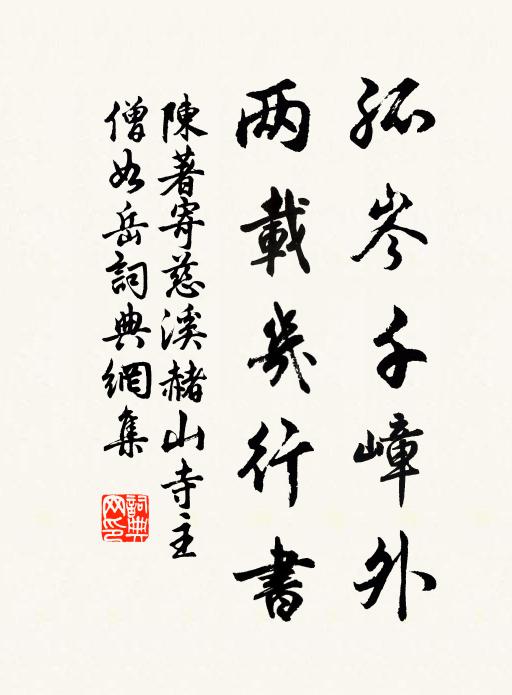 孤岑千嶂外
两載幾行書
陳著寄慈溪赭山寺主
僧如岳詞典網集
詞典
网印